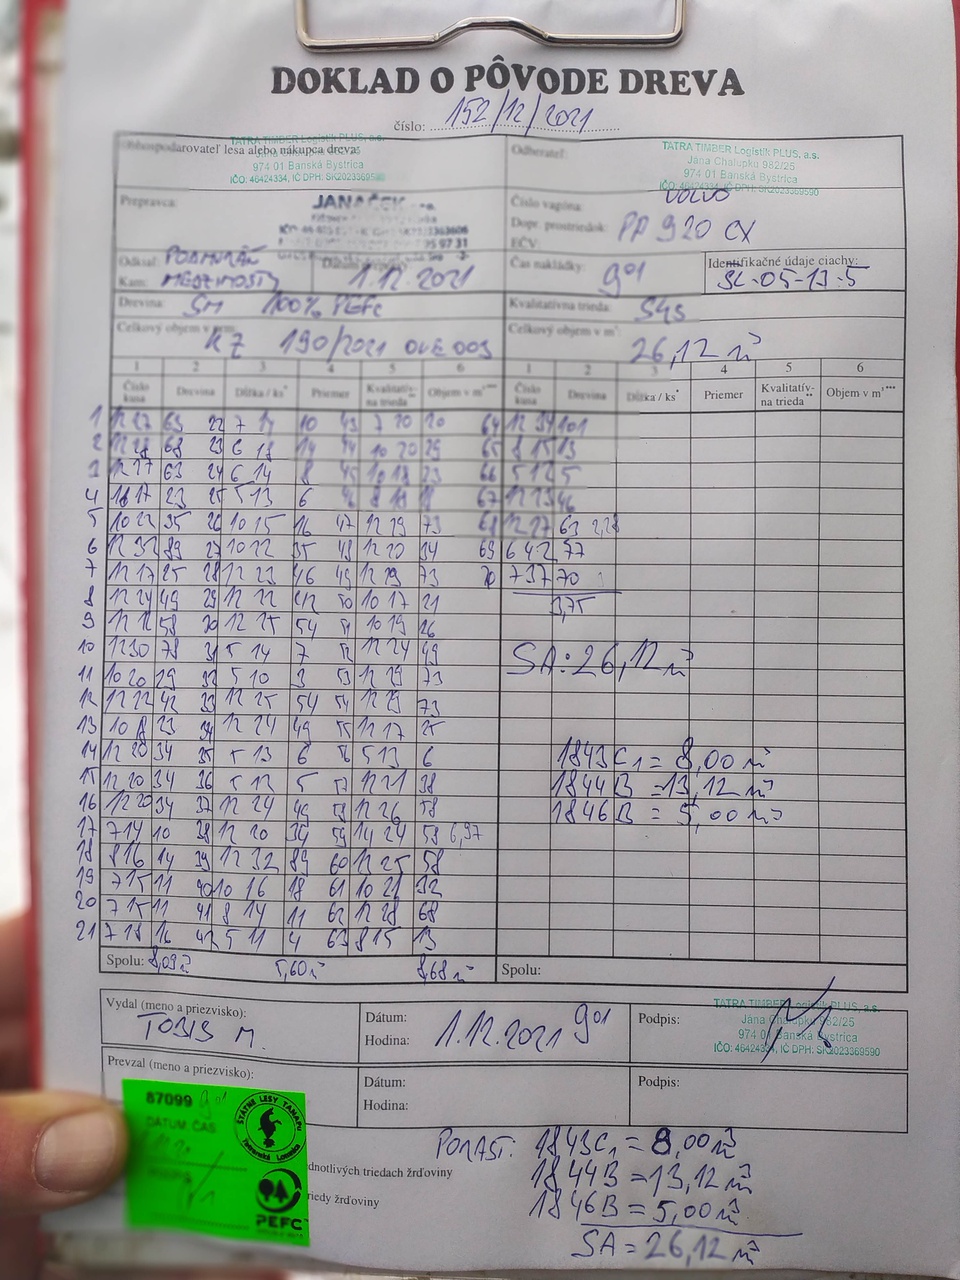 DOKLAD O PÔVODE DREVA
číslo: 152/12/2021
Obhospodarovateľ lesa alebo nákupca dreva:
TATRA TIMBER Logistik PLUS, a.s.
974 01 Banská Bystrica
IČO: 46424334, IČ DPH: SK2023369590
Odberateľ:
TATRA TIMBER Logistik PLUS, a.s.
Jána Chalupku 982/25
974 01 Banská Bystrica
IČO: 46424334, IČ DPH: SK2023369590
Prepravca: JANAČEK
Číslo vagóna: VOLVO
Dopr. prostriedok: PP 920 CX
EČV:
Odkiaľ:
Kam: MEDZIMOSTY
1.12.2021
Čas nakládky: 901
Identifikačné údaje ciachy:
SL-05-13-5
Drevina: SM 100% PEFC
Kvalitatívna trieda:
Celkový objem v prm:
190/2021
Celkový objem v m³:
26,12 m³
1 2 3 4 5 6 1 2 3 4 5 6
Číslo kusa Drevina Dĺžka / ks* Priemer Kvalitatív-na trieda** Objem v m³*** Číslo kusa Drevina Dĺžka / ks* Priemer Kvalitatív-na trieda** Objem v m³***
1 12 27 63 22 7 14 10 43 7 20 20 64 12 34 101
2 12 28 68 23 6 18 14 44 10 20 29 65 8 15 13
3 12 27 63 24 6 14 8 45 10 18 23 66 5 12 5
4 18 17 23 25 5 13 6 46 8 18 18 67 12 23 46
5 10 22 35 26 10 15 16 47 12 29 73 68 12 27 63 2,28
6 12 32 89 27 10 22 35 48 12 20 34 69 6 42 77
7 12 17 25 28 12 23 46 49 12 29 73 70 7 37 70
8 12 24 49 29 12 22 42 50 10 17 21
3,75
9 12 58 30 12 25 54 51 10 19 26
10 12 30 78 31 5 14 7 52 12 24 49
SA: 26,12 m³
11 10 20 29 32 5 10 3 53 12 29 73
12 12 22 42 33 12 25 54 54 12 29 73
13 10 8 23 34 12 24 49 55 12 17 25
14 12 20 34 35 5 13 6 56 5 13 6
1843C1 = 8,00 m³
15 12 20 34 36 5 12 5 57 12 21 38
1844B = 13,12 m³
16 12 20 34 37 12 24 49 58 12 26 58
1846B = 5,00 m³
17 7 14 10 38 12 20 34 59 14 24 58 6,97
18 8 16 14 39 12 32 89 60 12 25 58
19 7 15 11 40 10 16 18 61 10 21 32
20 7 15 11 41 8 14 11 62 12 28 68
21 7 18 16 42 5 11 4 63 8 15 13
Spolu: 8,09 m³ 5,60 m³ 8,68 m³
Spolu:
Vydal (meno a priezvisko):
TOBIS M.
Dátum:
Hodina:
1.12.2021 901
Podpis:
TATRA TIMBER Logistik PLUS, a.s.
Jána Chalupku 982/25
974 01 Banská Bystrica
IČO: 46424334, IČ DPH: SK2023369590
Prevzal (meno a priezvisko):
Dátum:
Hodina:
Podpis:
87099 901
DÁTUM, ČAS
ŠTÁTNE LESY TANAPu
Tatranská Lomnica
PEFC
PORAST: 1843C1 = 8,00 m³
dnotlivých triedach žrďoviny
1844B = 13,12 m³
riedy žrďoviny
1846B = 5,00 m³
SA = 26,12 m³